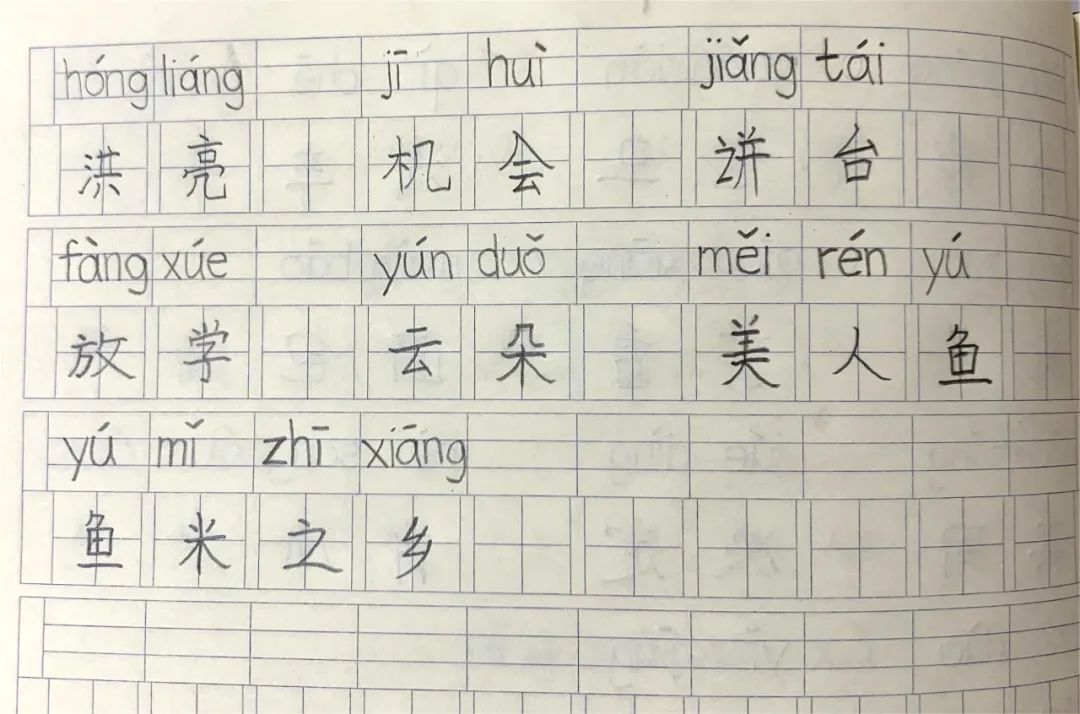 hóng liáng jī huì jiǎng tái
洪亮 机会 讲台
fàng xúe yún duǒ měi rén yú
放学 云朵 美人鱼
yú mǐ zhī xiāng
鱼米之乡